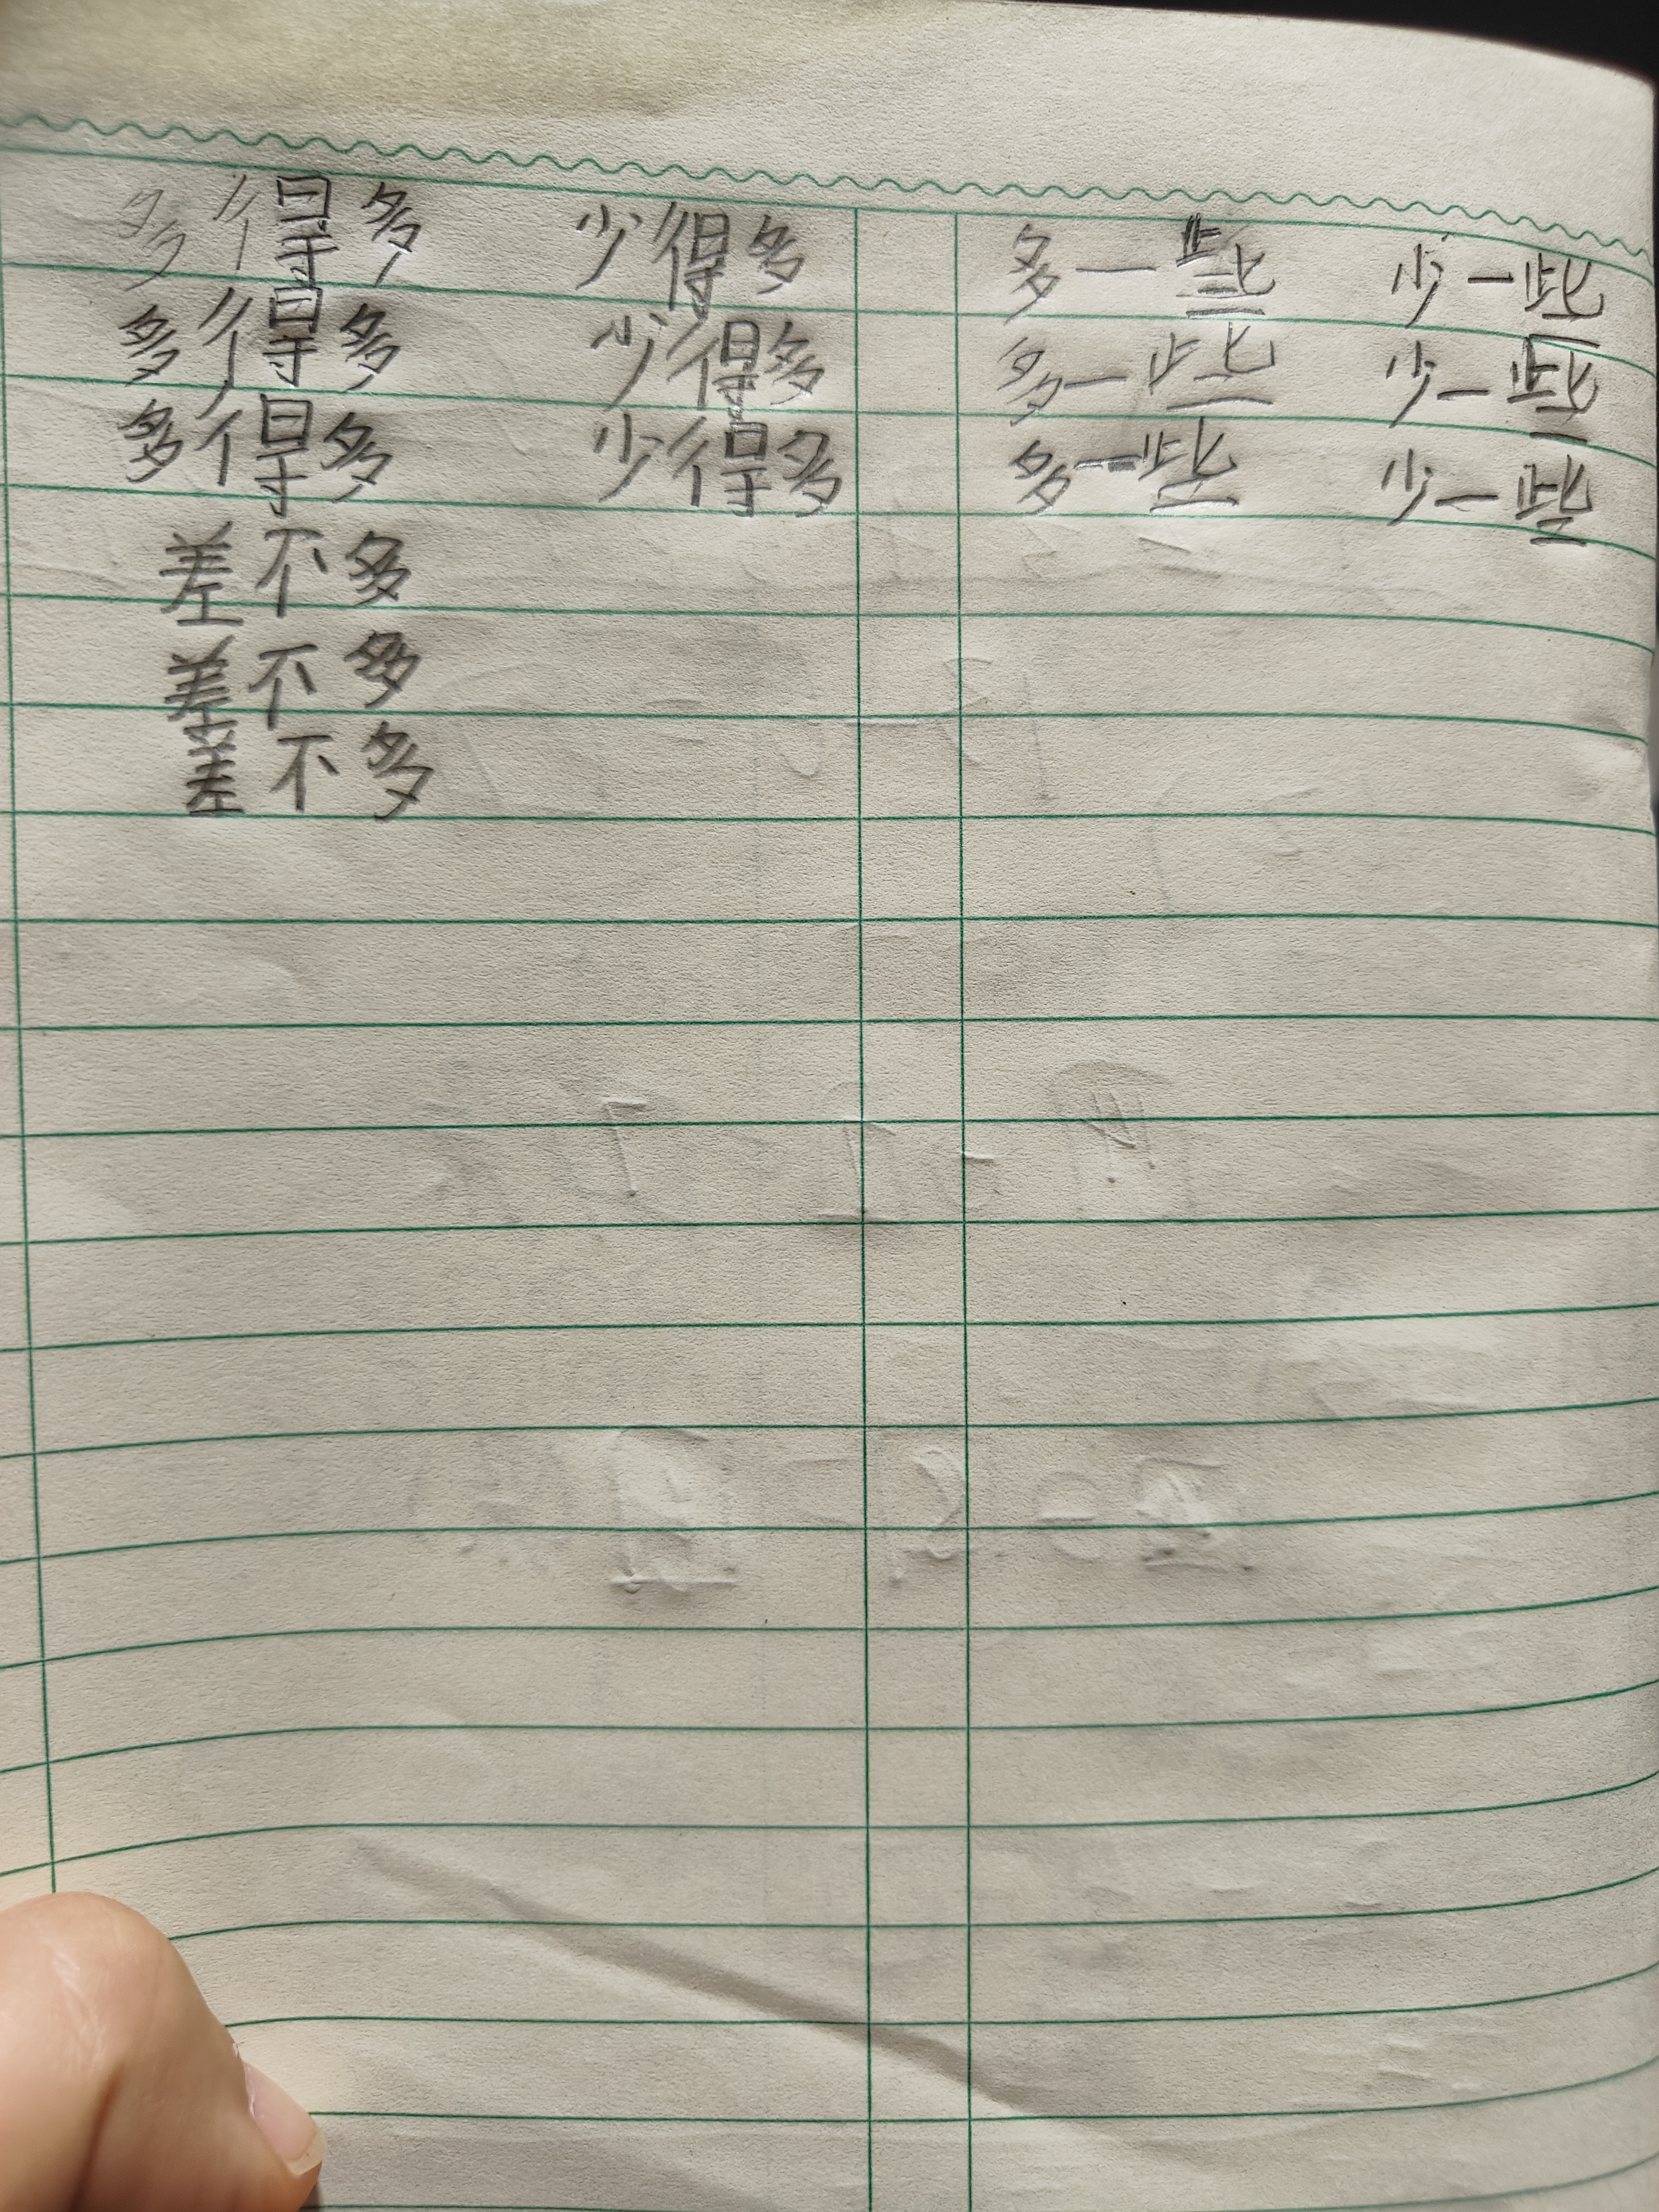 多得多 少得多 多一些 少一些
多得多 少得多 多一些 少一些
多得多 少得多 多一些 少一些
差不多
差不多
差不多